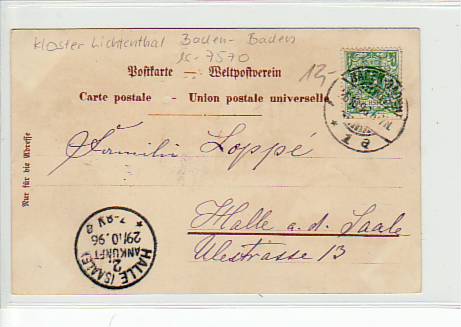 Kloster Lichtenthal Baden-Baden
lc-7570
Postkarte — Weltpostverein
12,-
Carte postale - Union postale universelle
Nur für die Adresse
Familie Loppé
Halle a.d. Saale
HALLE (SAALE)
ANKUNFT
29/10.96
7-8V